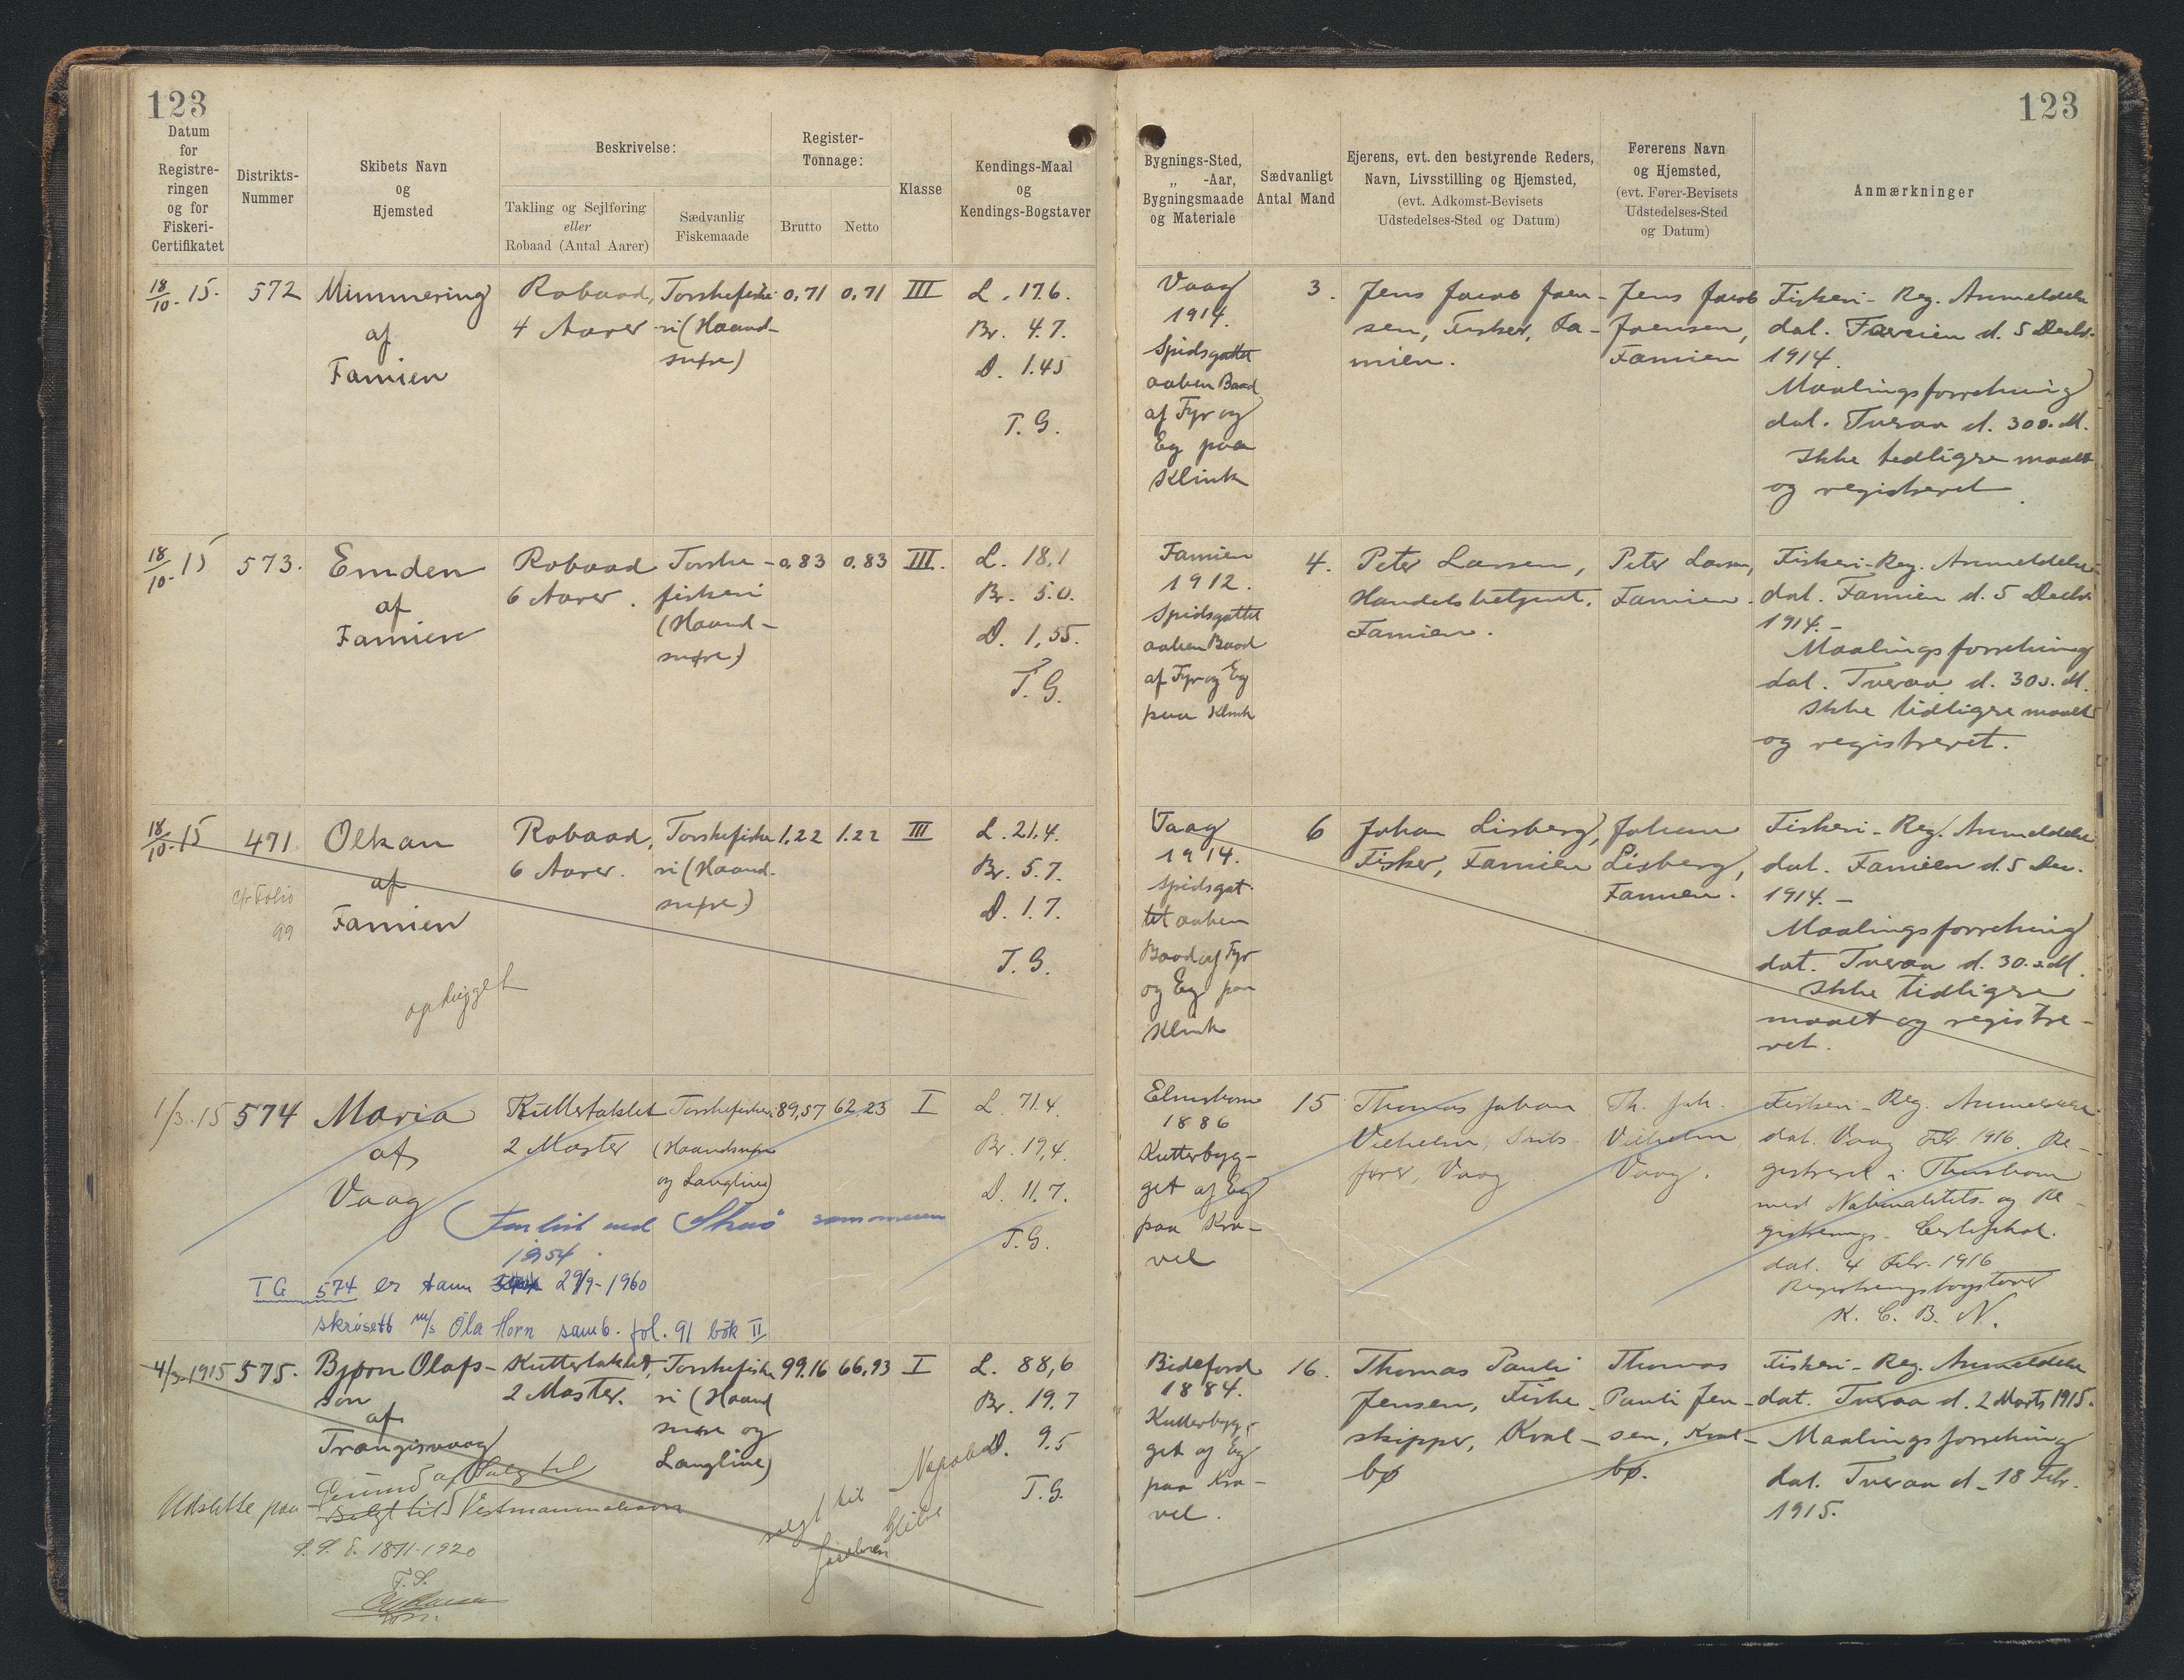 123
123
Datum
for
Registre-
ringen
og for
Fiskeri-
Certifikatet
Distrikts-
Nummer
Skibets Navn
og
Hjemsted
Beskrivelse:
Takling og Sejlføring
eller
Robaad (Antal Aarer)
Sædvanlig
Fiskemaade
Register-
Tonnage:
Brutto
Netto
Klasse
Kendings-Maal
og
Kendings-Bogstaver
Bygnings-Sted,
„ -Aar,
Bygningsmaade
og Materiale
Sædvanligt
Antal Mand
Ejerens, evt. den bestyrende Reders,
Navn, Livsstilling og Hjemsted,
(evt. Adkomst-Bevisets
Udstedelses-Sted og Datum)
Førerens Navn
og Hjemsted,
(evt. Fører-Bevisets
Udstedelses-Sted
og Datum)
Anmærkninger
18/10.15.
572
Mimmering
af
Famien
Robaad,
4 Aarer
Torskefiske-
ri (Haand-
snøre)
0,71
0,71
III
L. 17.6.
Br. 4.7.
D. 1.45
T. G.
Vaag
1914.
Spidsgattet
aaben Baad
af Fyr og
Eg paa
Klink
3.
Jens Jacob Joen-
sen, Fisker, Fa-
mien.
Jens Jacob
Joensen,
Famien
Fiskeri-Reg. Anmeldelse
dat. Famien d. 5 Decbr.
1914.
Maalingsforretning
dat. Tveraa d. 30 s. M.
Ikke tidligere maalt
og registreret
18/10.15
573.
Emden
af
Famien
Robaad
6 Aarer.
Torske-
fiskeri
(Haand-
snøre)
0,83
0,83
III.
L. 18,1
Br. 5.0.
D. 1,55.
T. G.
Famien
1912.
Spidsgattet
aaben Baad
af Fyr og Eg
paa Klink
4.
Peter Larsen,
Handelsbetjent,
Famien.
Peter Larsen,
Famien.
Fiskeri-Reg. Anmeldelse
dat. Famien d. 5 Decbr.
1914.-
Maalingsforretning
dat. Tveraa d. 30 s. M.
Ikke tidligere maalt
og registreret.
18/10.15
471
cfr Folio
99
Olkan
af
Famien
ophugget
Robaad,
6 Aarer.
Torskefiske
ri (Haand-
snøre)
1,22
1.22
III
L. 21,4.
Br. 5.7.
D. 1.7.
T. G.
Vaag
1914.
Spidsgat-
tet aaben
Baad af Fyr
og Eg paa
Klink
6
Johan Lisberg,
Fisker, Famien
Johan
Lisberg,
Famien.
Fiskeri-Reg. Anmeldelse
dat. Famien d. 5 Dec.
1914.-
Maalingsforretning
dat. Tveraa d. 30. s. M.
Ikke tidligere
maalt og registre-
ret.
1/3.15
574
Maria
af
Vaag
Kuttertaklet
2 Master
Torskefiskeri
(Haandsnøre
og Langline)
89,57
62,23
I
L. 71.4.
Br. 19,4.
D. 11.7.
T. G.
Forlist ved Skuö sommeren
1954.
TG 574 er tann 29/9-1960
skrásett m/s Óla Horn samb. fol. 91 bók II
Elmshorn
1886
Kutterbyg-
get af Eg
paa Kra-
vel
15
Thomas Johan
Vilhelm, Skibs-
fører, Vaag
Th. Joh.
Vilhelm
Vaag.
Fiskeri-Reg. Anmeldelse
dat. Vaag Febr. 1916. Re-
gistreret i Thorshavn
med Nationalitets- og Re-
gistrerings-Certifikat
dat. 4 Febr. 1916
Registreringsbogstaver
K. C. B. N.
4/3 1915
575.
Bjørn Olafs-
son
af
Trangisvaag
Kuttertaklet,
2 Master.
Torskefiske
ri (Haand
snøre og
Langline)
99,16
66,93
I
L. 88,6
Br. 19.7
D. 9.5
T. G.
Udslette paa
Grund af Salg til
Solgt til Vestmannahavn
1871-1920
solgt til
Bideford
1884.
Kutterbyg-
get af Eg
paa Kra-
vel.
16.
Thomas Pauli
Jensen, Fiske-
skipper, Kval-
bø
Thomas
Pauli Jen-
sen, Kval-
bø.
Fiskeri-Reg. Anmeldelse
dat. Tveraa d. 2 Marts 1915.
Maalingsforretning
dat. Tveraa d. 18 Febr.
1915.